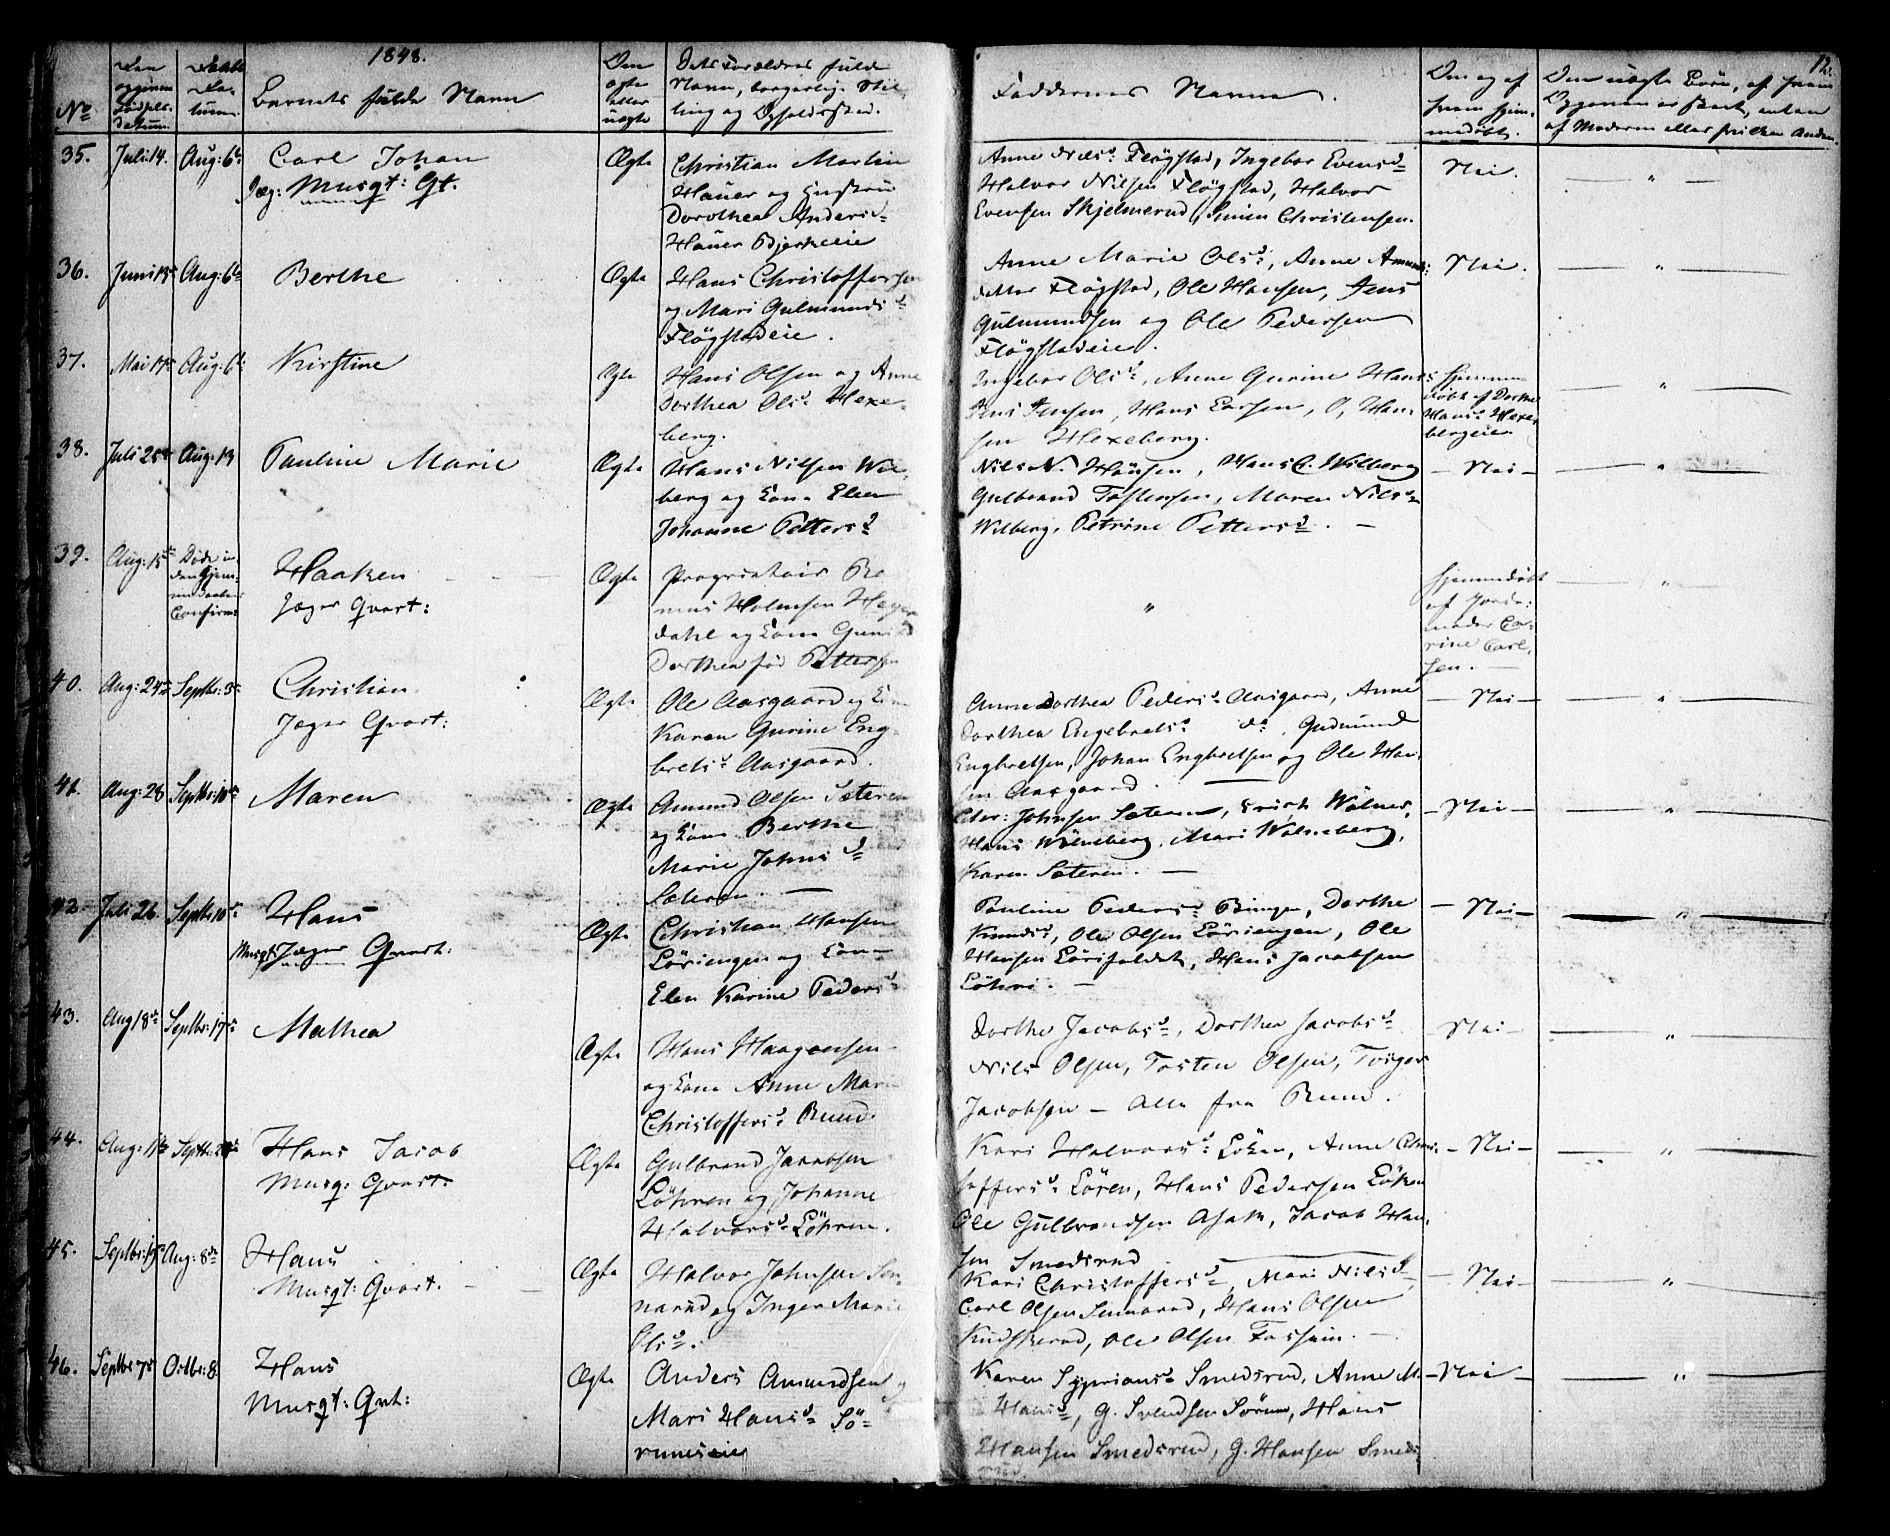 1848.
12.
No
Den opgivne Fødsels-datum.
Daabs Datum.
Barnets fulde Navn
Den ægte eller uægte
Dets Forældres fulde
Navn, borgerlige Stil-
ling og Opholdssted.
Faddernes Navne.
Om og af
hvem hjem-
medøbt.
Den uægte Børn, af hvem
Opgaven er skeet, enten
af Moderen eller hvilken Anden
35. Juli 14. Aug: 6te Carl Johan
Jæg: Musqt: Qt.
Ægte
Christian Martin
Hauer og Hustru
Dorothea Andersd
Hauer Bjerkeeie
Anne Nilsd: Fløgstad, Ingebor Evensd
Halvor Nilsen Fløgstad, Halvor
Evensen Skjelmerud, Simen Christensen.
Nei.
36. Juni 13 Aug: 6te Berthe
Ægte
Hans Christoffersen
og Mari Gulmunds
Fløgstadeie.
Anne Marie Olsd, Anne Amunds-
datter Fløgstad, Ole Hansen, Jens
Gulmundsen og Ole Pedersen
Fløgstadeie.
Nei.
37. Mai 17 Aug: 6te Kirstine
Ægte
Hans Olsen og Anne
Dorthea Olsd Hexe-
berg.
Ingebor Olsd, Anne Gurine Hans
Jens Jensen, Hans Larsen, O, Han-
sen Hexeberg.
Hjemme-
døbt af Dorthe
Hansd Hexe-
bergeie.
38. Juli 25 Aug: 13 Pauline Marie
Ægte
Hans Nilsen Wil-
berg og Kone Elen
Johanne Pettersd
Nils N. Hansen, Hans C. Wilberg
Gulbrand Tostensen, Maren Nilsd
Wilberg, Petrine Pettersd. —
— Nei —
39. Aug: 15
Døde in-
den Hjem-
medaaben
Confirm:
Haaken
Jæger Qvart:
Ægte
Proprietair Ra
mus Holmsen Heyer
dahl og Kone Guni
Dorthea fød Pettersen
"
Hjemmedøbt
af Jorde-
moder Ca-
rine Carl-
sen. —
40. Aug: 24 Septbr: 3 Christian.
Jæger Qvart:
Ægte
Ole Aasgaard og Kone
Karen Gurine Eng-
bretsd Aasgaard.
Anne Dorthea Pedersd Aasgaard, Anne
Dorthea Engebretsd do, Gudmund
Engbretsen, Johan Engbretsen og Ole Han-
sen Aasgaard.
— Nei —
41. Aug: 28 Septbr: 10 Maren
Ægte
Amund Olsen Sæteren
og Kone Berthe
Marie Johnsd
Sæteren. —
Chr: Johnsen Sæteren, Erick Wølner,
Hans Wølneberg, Mari Wølneberg,
Karen Sæteren. —
— Nei —
42. Juli 26. Septbr: 10 Hans
Musqt: Jæger Qvart:
Ægte
Christian Hansen
Løriengen og Kone
Elen Karine Pedersd
Pauline Pedersd Bingen, Dorthe
Knudsd, Ole Olsen Løriengen, Ole
Hansen Lørifaldet, Hans Jacobsen
Løhri. —
— Nei —
43. Aug 18 Septbr: 17 Mathea
Ægte
Hans Haagensen
og Kone Anne Marie
Christoffersd Rund.
Dorthe Jacobsd, Dorthea Jacobsd
Nils Olsen, Tosten Olsen, Torger
Jacobsen — Alle fra Rund.
Nei
44. Aug: 1 Septbr: Hans Jacob
Musq: Qvart:
Ægte
Gulbrand Jacobsen
Løhren og Johanne
Halvorsd Løhren.
Kari Halvorsd Løken, Anne Chri-
stoffersd Løren, Hans Pedersen Løken
Ole Gulbrandsen Asak, Jacob Han-
sen Smedsrud
— Nei —
45. Septbr: 19 Aug: 8 Hans
Musqt: Qvart.
Ægte
Halvor Johnsen Sen-
narud og Inger Marie
Olsd.
Kari Christoffersd, Mari Nilsd
Carl Olsen Sennerud, Hans Olsen
Kudskerud, Ole Olsen Fossum. —
— Nei —
46. Septbr 7 Octbr: 8 Hans
Musqt: Qvt:
Ægte
Anders Amundsen
Mari Hansd Sø-
rumseie
Karen Syprians Smedsrud, Anne M.
Hansd, G. Svendsen Sørum, Hans
Hansen Smedsrud, G. Hansen Smeds
rud.
— Nei —